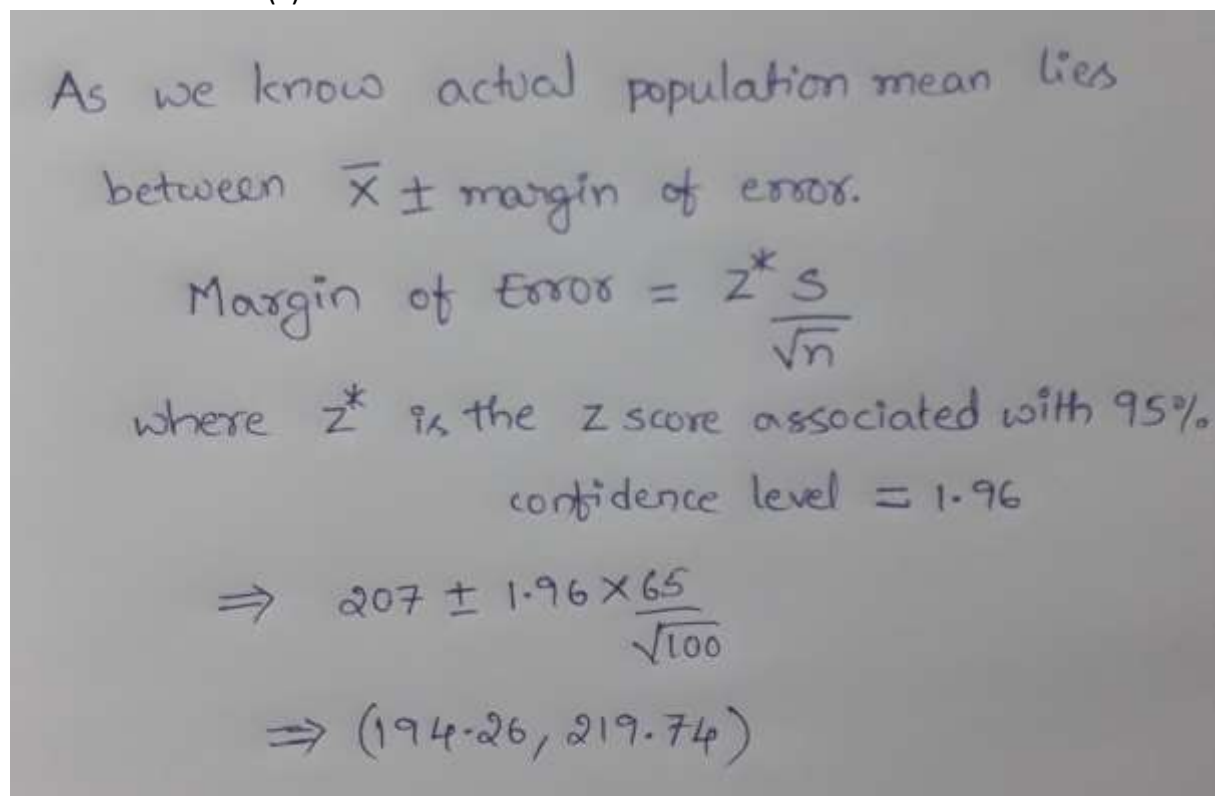 As we know actual population mean lies
between x̄ ± margin of error.
Margin of Error = z* s / √n
where z* is the z score associated with 95%
confidence level = 1.96
⇒ 207 ± 1.96 × 65 / √100
⇒ (194.26, 219.74)